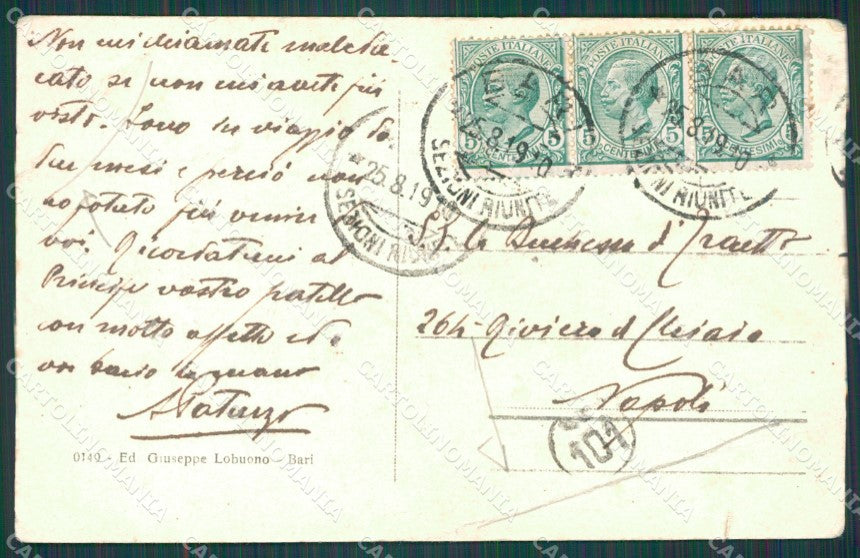 Non mi chiamate maledu-
cato se non mi avete più
visto. Sono in viaggio da
due mesi e perciò non
ho potuto più venire
voi. Ricordatemi al
Principe vostro fratello
con molto affetto ed a
voi bacio la mano
0149 - Ed Giuseppe Lobuono - Bari
POSTE ITALIANE
POSTE ITALIANE
5 CENTESIMI 5
5 CENTESIMI 5
25.8.19
SEZIONI RIUNITE
25.8.1910
SEZIONI RIUNITE
25.8.1910
SEZIONI RIUNITE
S.E. la Duchessa d'
264 - Riviera di Chiaia
Napoli
101
CARTOLINOMANIA